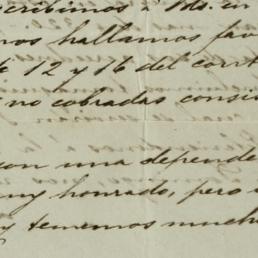 scribimos á Vds. en
nos hallamos fav
12 y 16 del corr
no cobradas consi
con una depende
muy honrado, pero
y tememos mucho